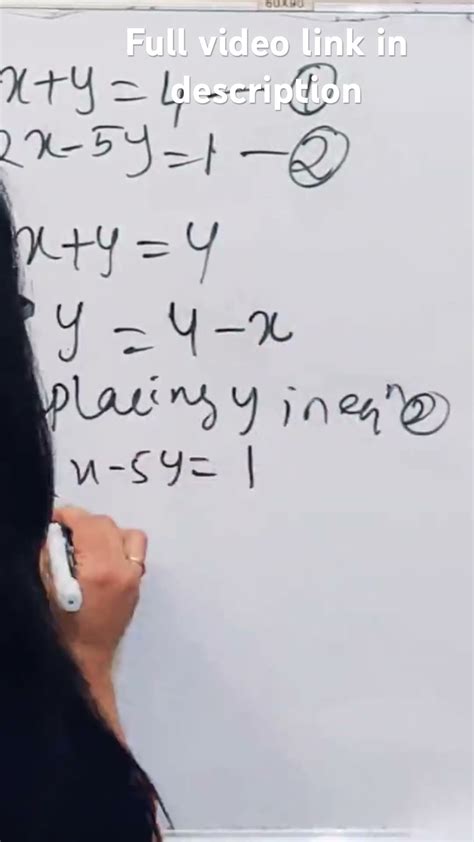 60X90
Full video link in
description
x+y=4 — ①
2x-5y=1 — ②
x+y=4
y=4-x
placing y in eqⁿ②
x-5y=1